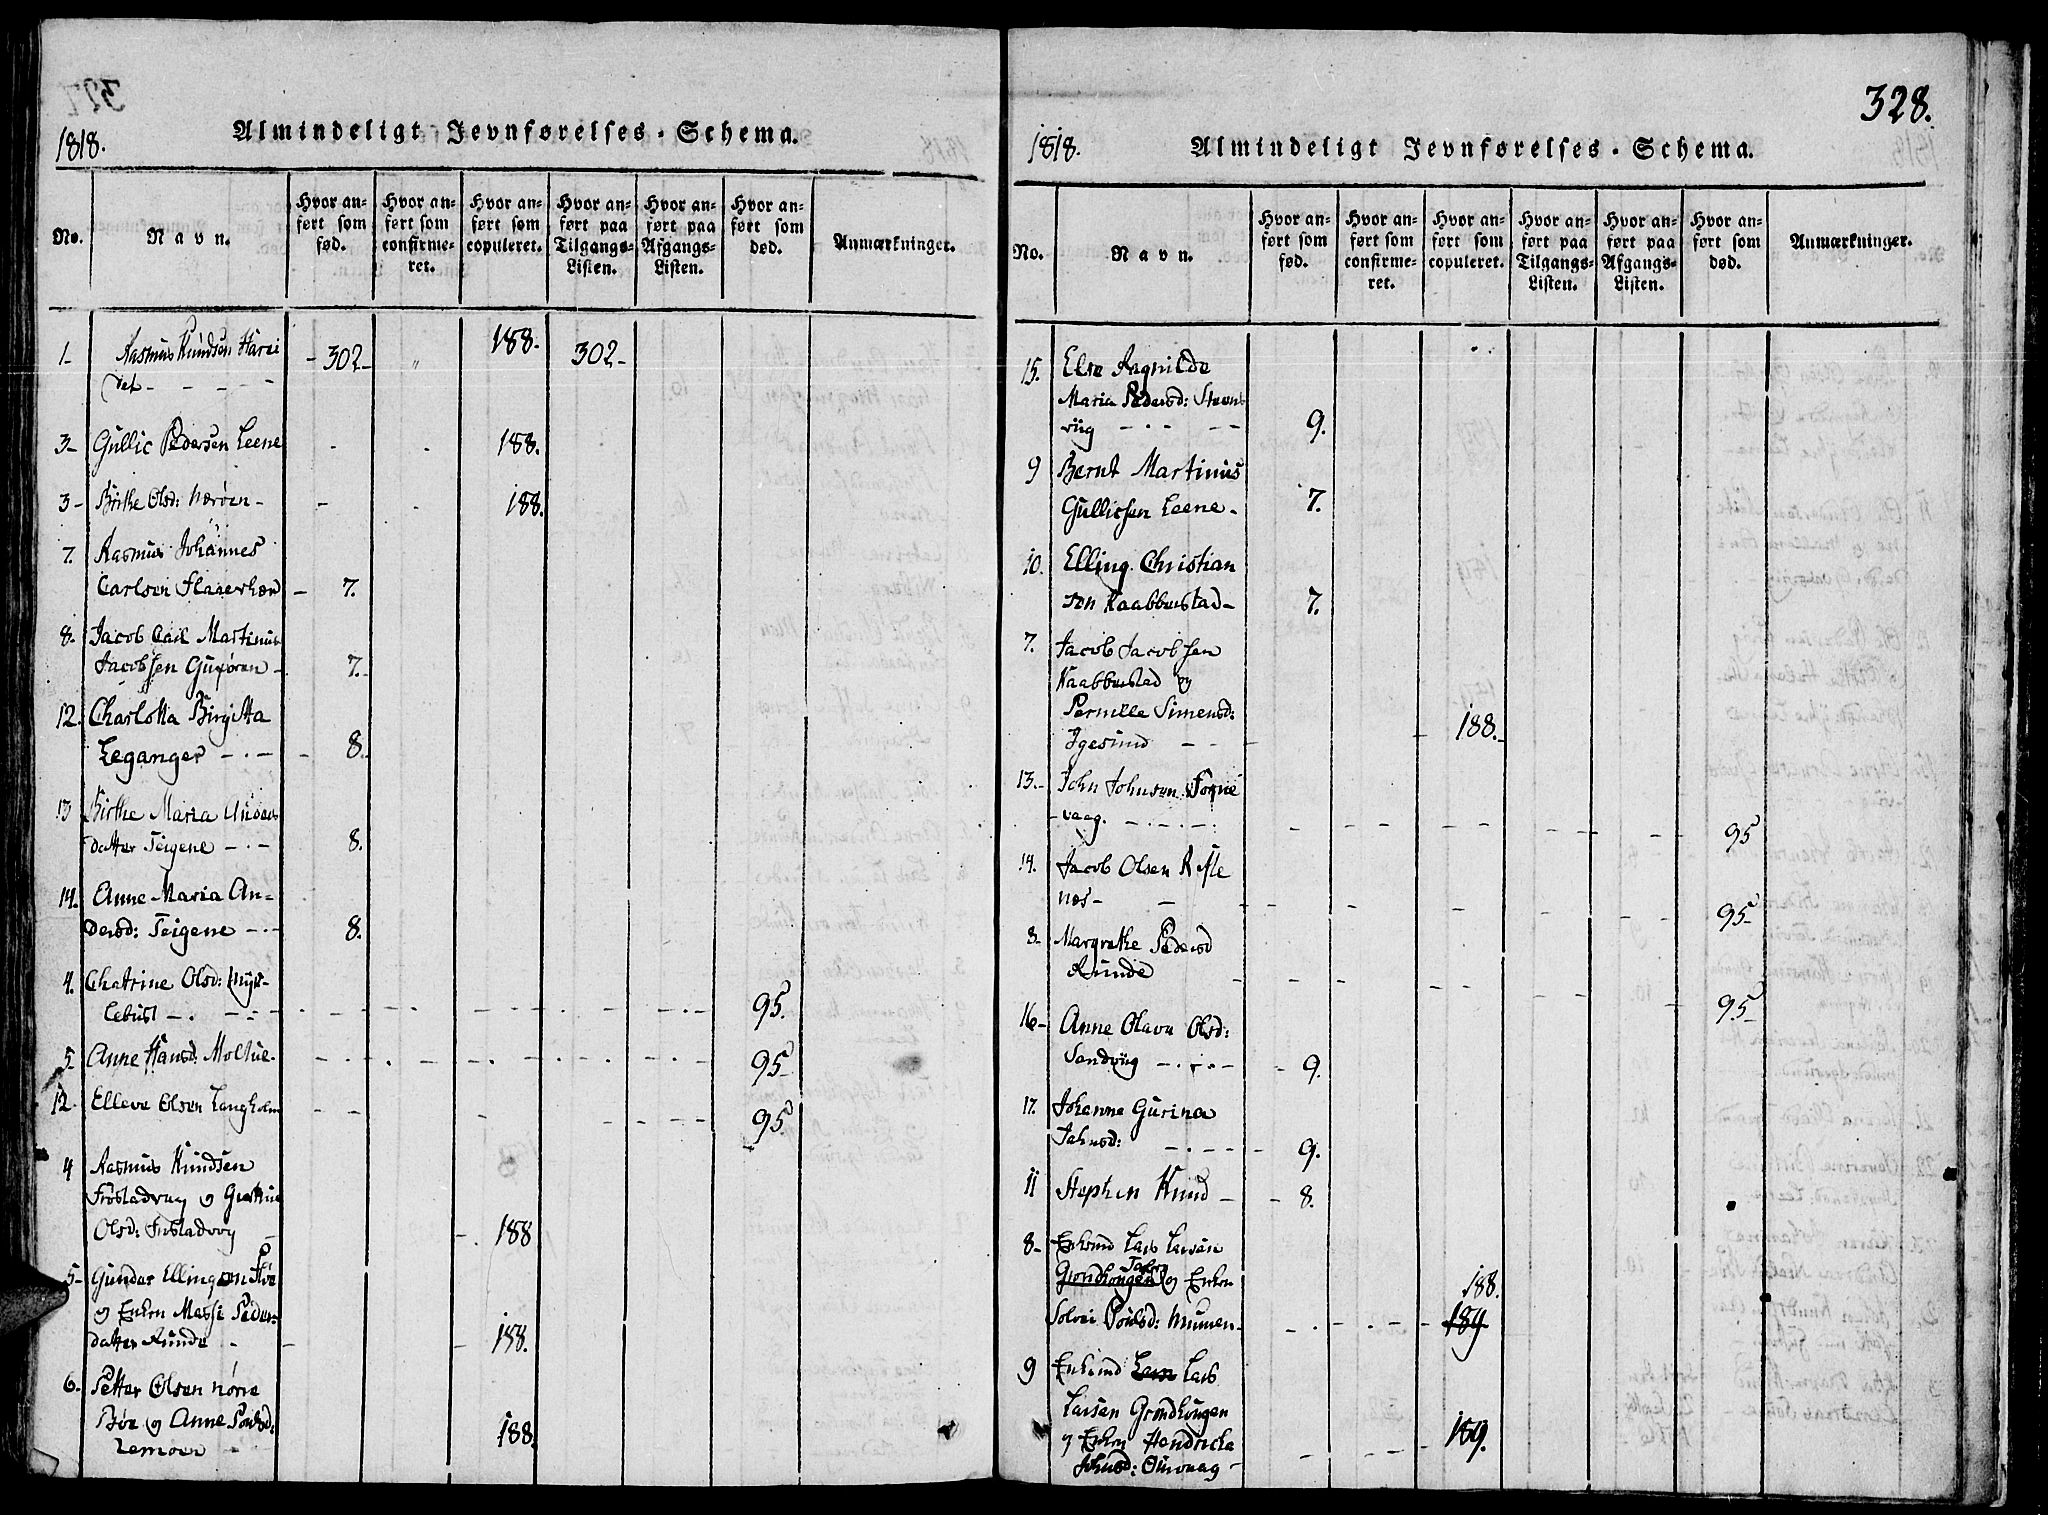 1818.
Almindeligt Jevnførelses-Schema.
No.
Navn.
Hvor anført som fød.
Hvor anført som confirmeret.
Hvor anført som copuleret.
Hvor anført paa Tilgangs-Listen.
Hvor anført paa Afgangs-Listen.
Hvor anført som død.
Anmærkninger.
1- Rasmus Knudsen Harei - 302- " 188. 302-
det - - - -
3- Gullic Pedersen Leene - . 188.
3- Birthe Olsd: Nærøen - - . 188.
7. Rasmus Johannes
Carlsen Flaaerhæn - 7.
8. Jacob Carl Martinus
Jacobsen Gurøren - 7.
12. Charlotta Birgitta
Leganger - . - - 8.
13 Birthe Maria Anders
datter Teigene - . - 8.
14. Anne Maria An-
dersd: Teigene - . - 8.
4. Chatrine Olsd: Mykl-
lebust - . - 95.
5 Anne Hansd: Moltue. 95-
12. Elleve Olsen Langholm 95
4 Rasmus Knudsen
Frøstadvug og
Olsd: Frøstadvog - 188
5- Gunder Ellingsen
og Enken Massi Peders
datter Runde - - 188.
6. Petter Olsen Nørre
Bøe og Anne Poulsd:
Lemoen - 188.
328.
1818.
Almindeligt Jevnførelses-Schema.
No.
Navn.
Hvor anført som fød.
Hvor anført som confirmeret.
Hvor anført som copuleret.
Hvor anført paa Tilgangs-Listen.
Hvor anført paa Afgangs-Listen.
Hvor anført som død.
Anmærkninger.
15. Else Ragnilde
Maria Pedersd: Stoens
viig - . - - - 9.
9 Bernt Martinus
Gullicsen Leene - 7.
10. Elling Christian
sen Kaabbustad - 7.
7. Jacob Jacobsen
Kaabbustad og
Pernille Simensd:
Igesund - - - 188.-
13.- John Johnsen Torne
vaag. - . - . - 95
14. Jacob Olsen Refle
næs - - 95-
8- Margrethe Pedersd
Runde 95-
16- Anne Olava Olsd:
Sandviig - . - . - - 9.
17. Johanne Gurina
Jahnsd: - . - - 9.
11 Stephen Knud - - 8.
8- Enkemd Lars Larsen
Grondhougen og Enken 188.
Solvei Poulsd: Mumen - 189
9 Enkemd Lars
Larsen Grondhougen
og Enken Hendricka 189.
Johnsd: Ourvaag -